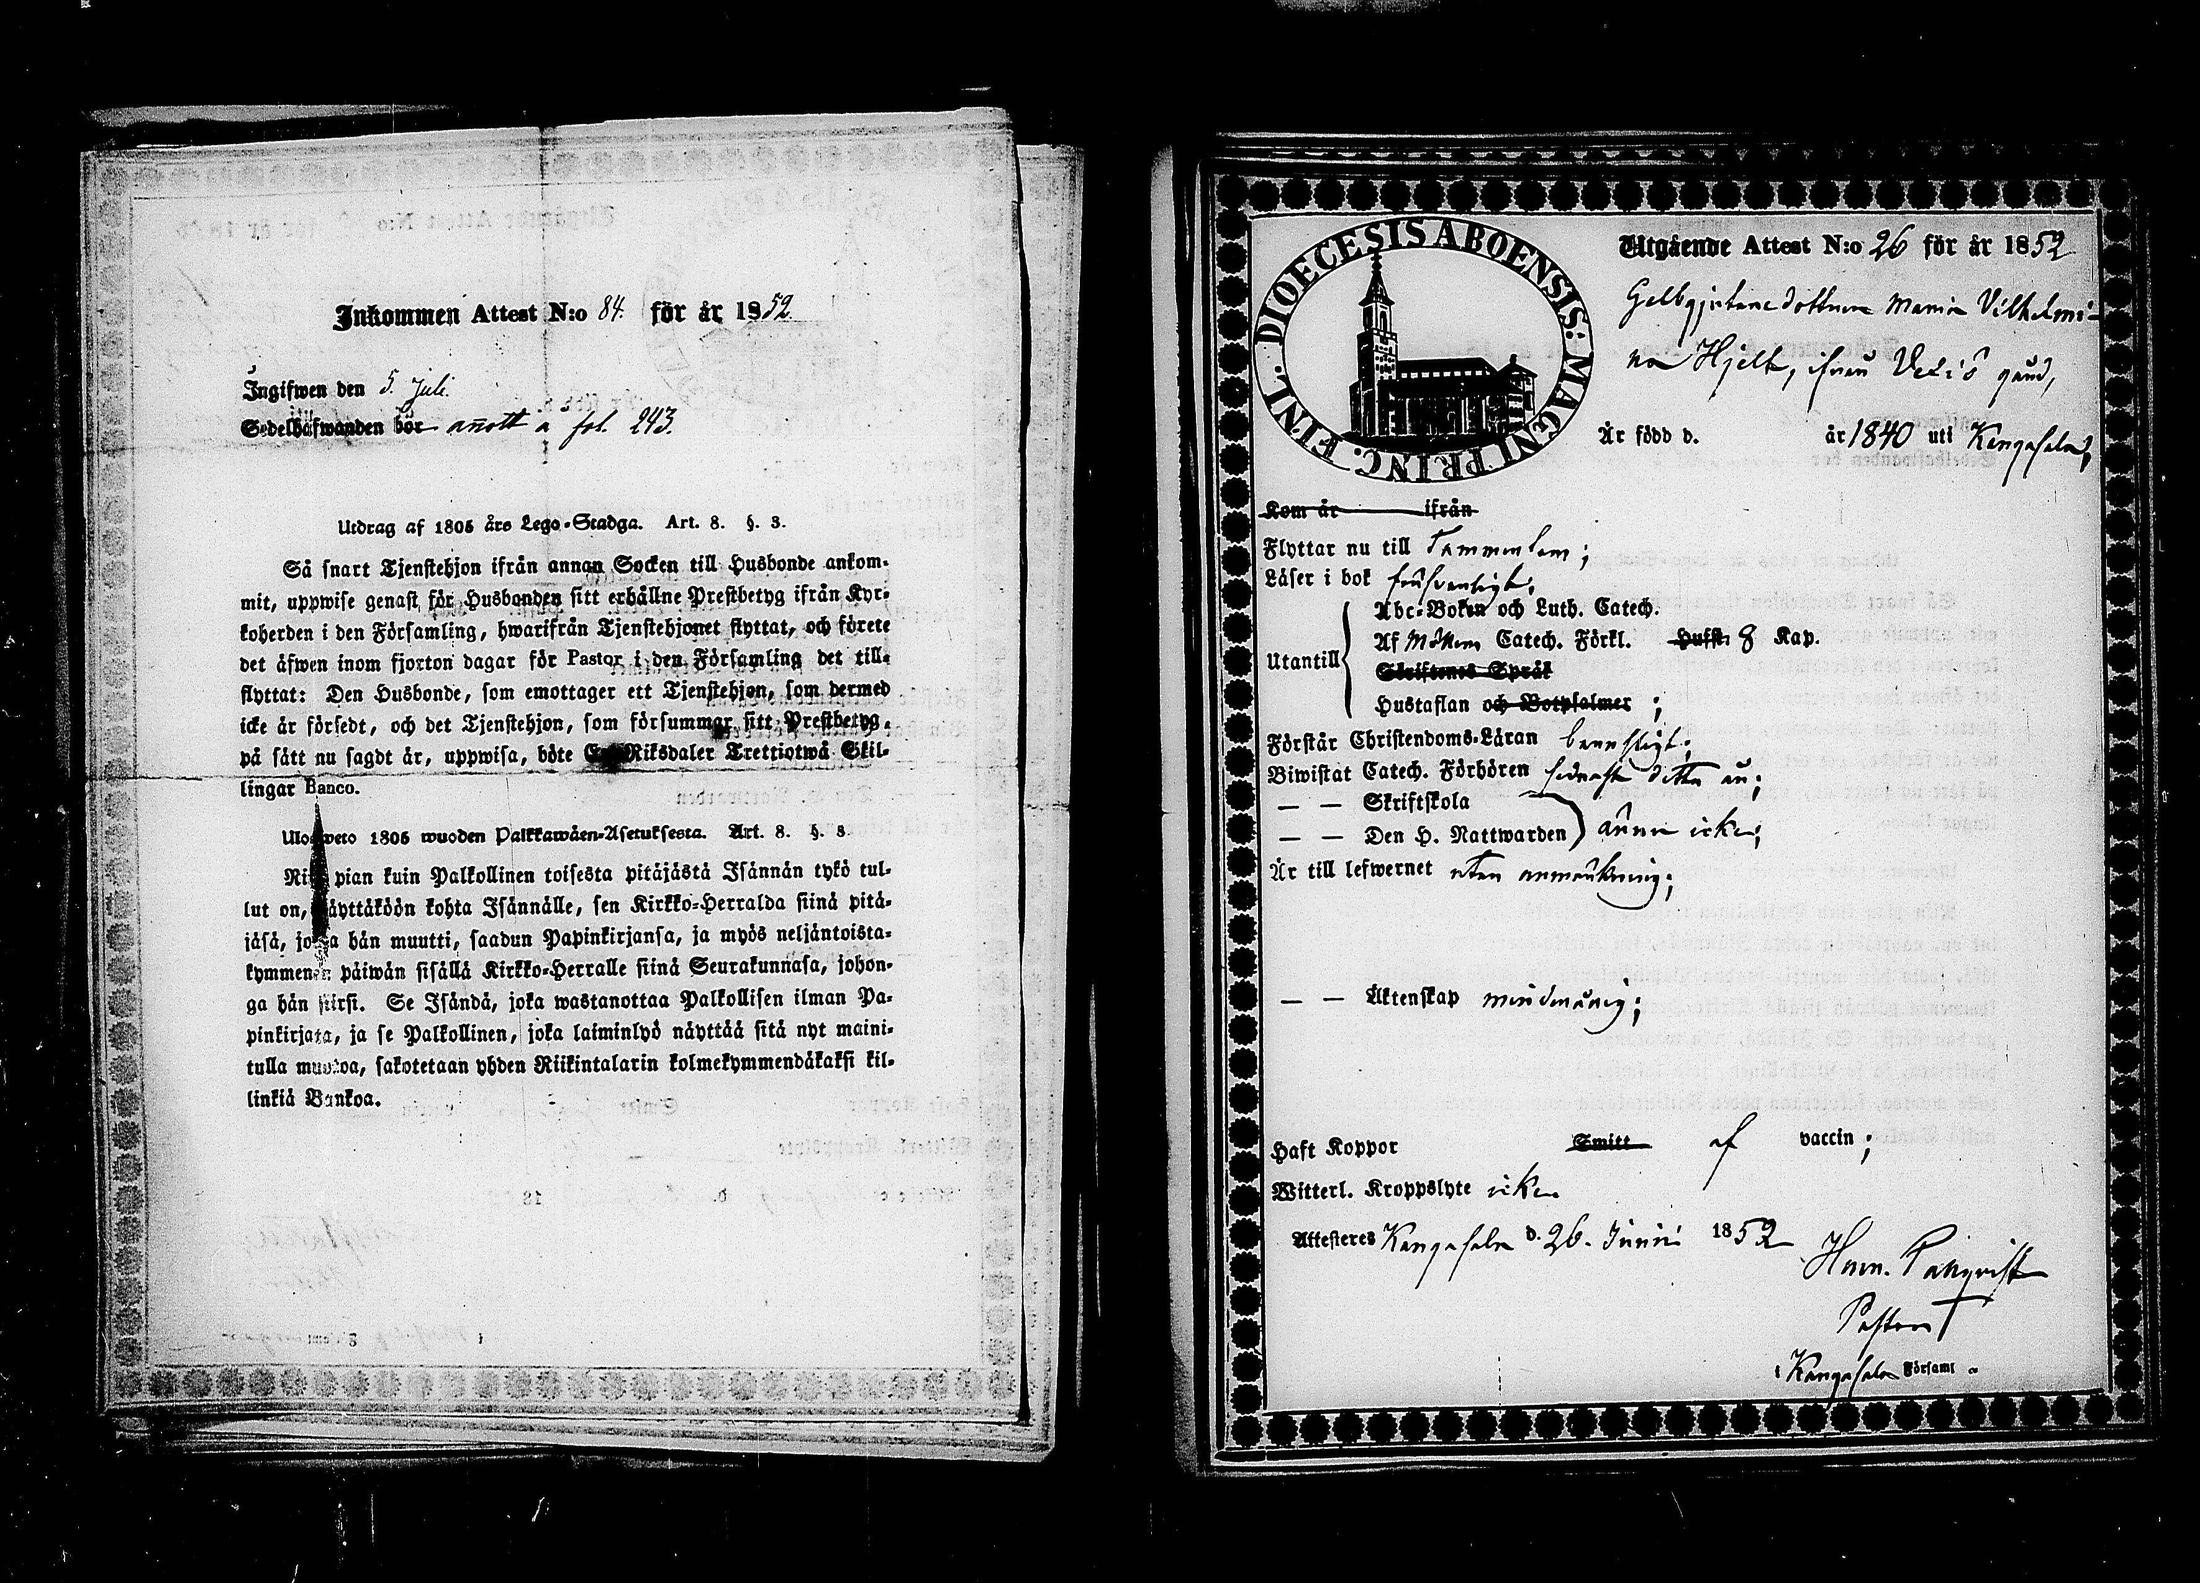 Inkommen Attest N:o 84. för år 1852
Ingifwen den 5. Juli.
Sedelhafwanden bör anott a fol. 243.
Utdrag af 1805 års Lego-Stadga. Art. 8. §. 3.
Så snart Tjenstehjon ifrån annan Socken till Husbonde ankom-
mit, uppwise genast för Husbonden sitt erhållne Prestbetyg ifrån Kyr-
koherden i den Församling, hwarifrån Tjenstehjonet flyttat, och förete
det äfwen inom fjorton dagar för Pastor i den Församling det till-
flyttat: Den Husbonde, som emottager ett Tjenstehjon, som dermed
icke är försedt, och det Tjenstehjon, som försummar sitt Prestbetyg,
på sätt nu sagdt är, uppwisa, böte Riksdaler Trettiotwå Skil-
lingar Banco.
1805 wuoden Palkkawäen-Asetuksesta. Art. 8. §. 3.
pian kuin Palkollinen toisesta pitäjästä Isännän tykö tul-
lut on, näyttäköön kohta Isännälle, sen Kirkko-Herralda siinä pitä-
jäsä, josta hän muutti, saadun Papinkirjansa, ja myös neljäntoista-
kymmenen päiwän sisällä Kirkko-Herralle siinä Seurakunnasa, johon-
ga hän siirsi. Se Isändä, joka wastanottaa Palkollisen ilman Pa-
pinkirjata, ja se Palkollinen, joka laiminlyö näyttää sitä nyt maini-
tulla muotoa, sakotetaan yhden Riikintalarin kolmekymmendäkaksi kil-
linkiä Bankoa.
DIOECESIS ABOENSIS: MAGNI PRINC. FINL.
Utgående Attest N:o 26 för år 1852
Gelbgjutaredottren Maria Vilhelmi-
na Hjelt, ifrån gård,
Är född d. år 1840 uti Kangasala,
Kom år ifrån
Flyttar nu till Tammerfors;
Läser i bok försvarligt;
Abc-Boken och Luth. Catech.
Af Möllers Catech. Förkl. Hufst. 8 Kap.
Utantill
Skriftenes Språk
Hustaflan och Botpsalmer;
Förstår Christendoms-Läran
Biwistat Catech. Förhören sednast detta år;
— — Skriftskola
— — Den H. Nattwarden ännu icke;
Är till lefwernet utan anmärkning;
— — Äktenskap minderårig;
Haft Koppor Smitt af vaccin;
Witterl. Kroppslyte icke.
Attesteras Kangasala d. 26. Junii 1852
Herm. Palqvist
Pastor
i Kangasala Församl